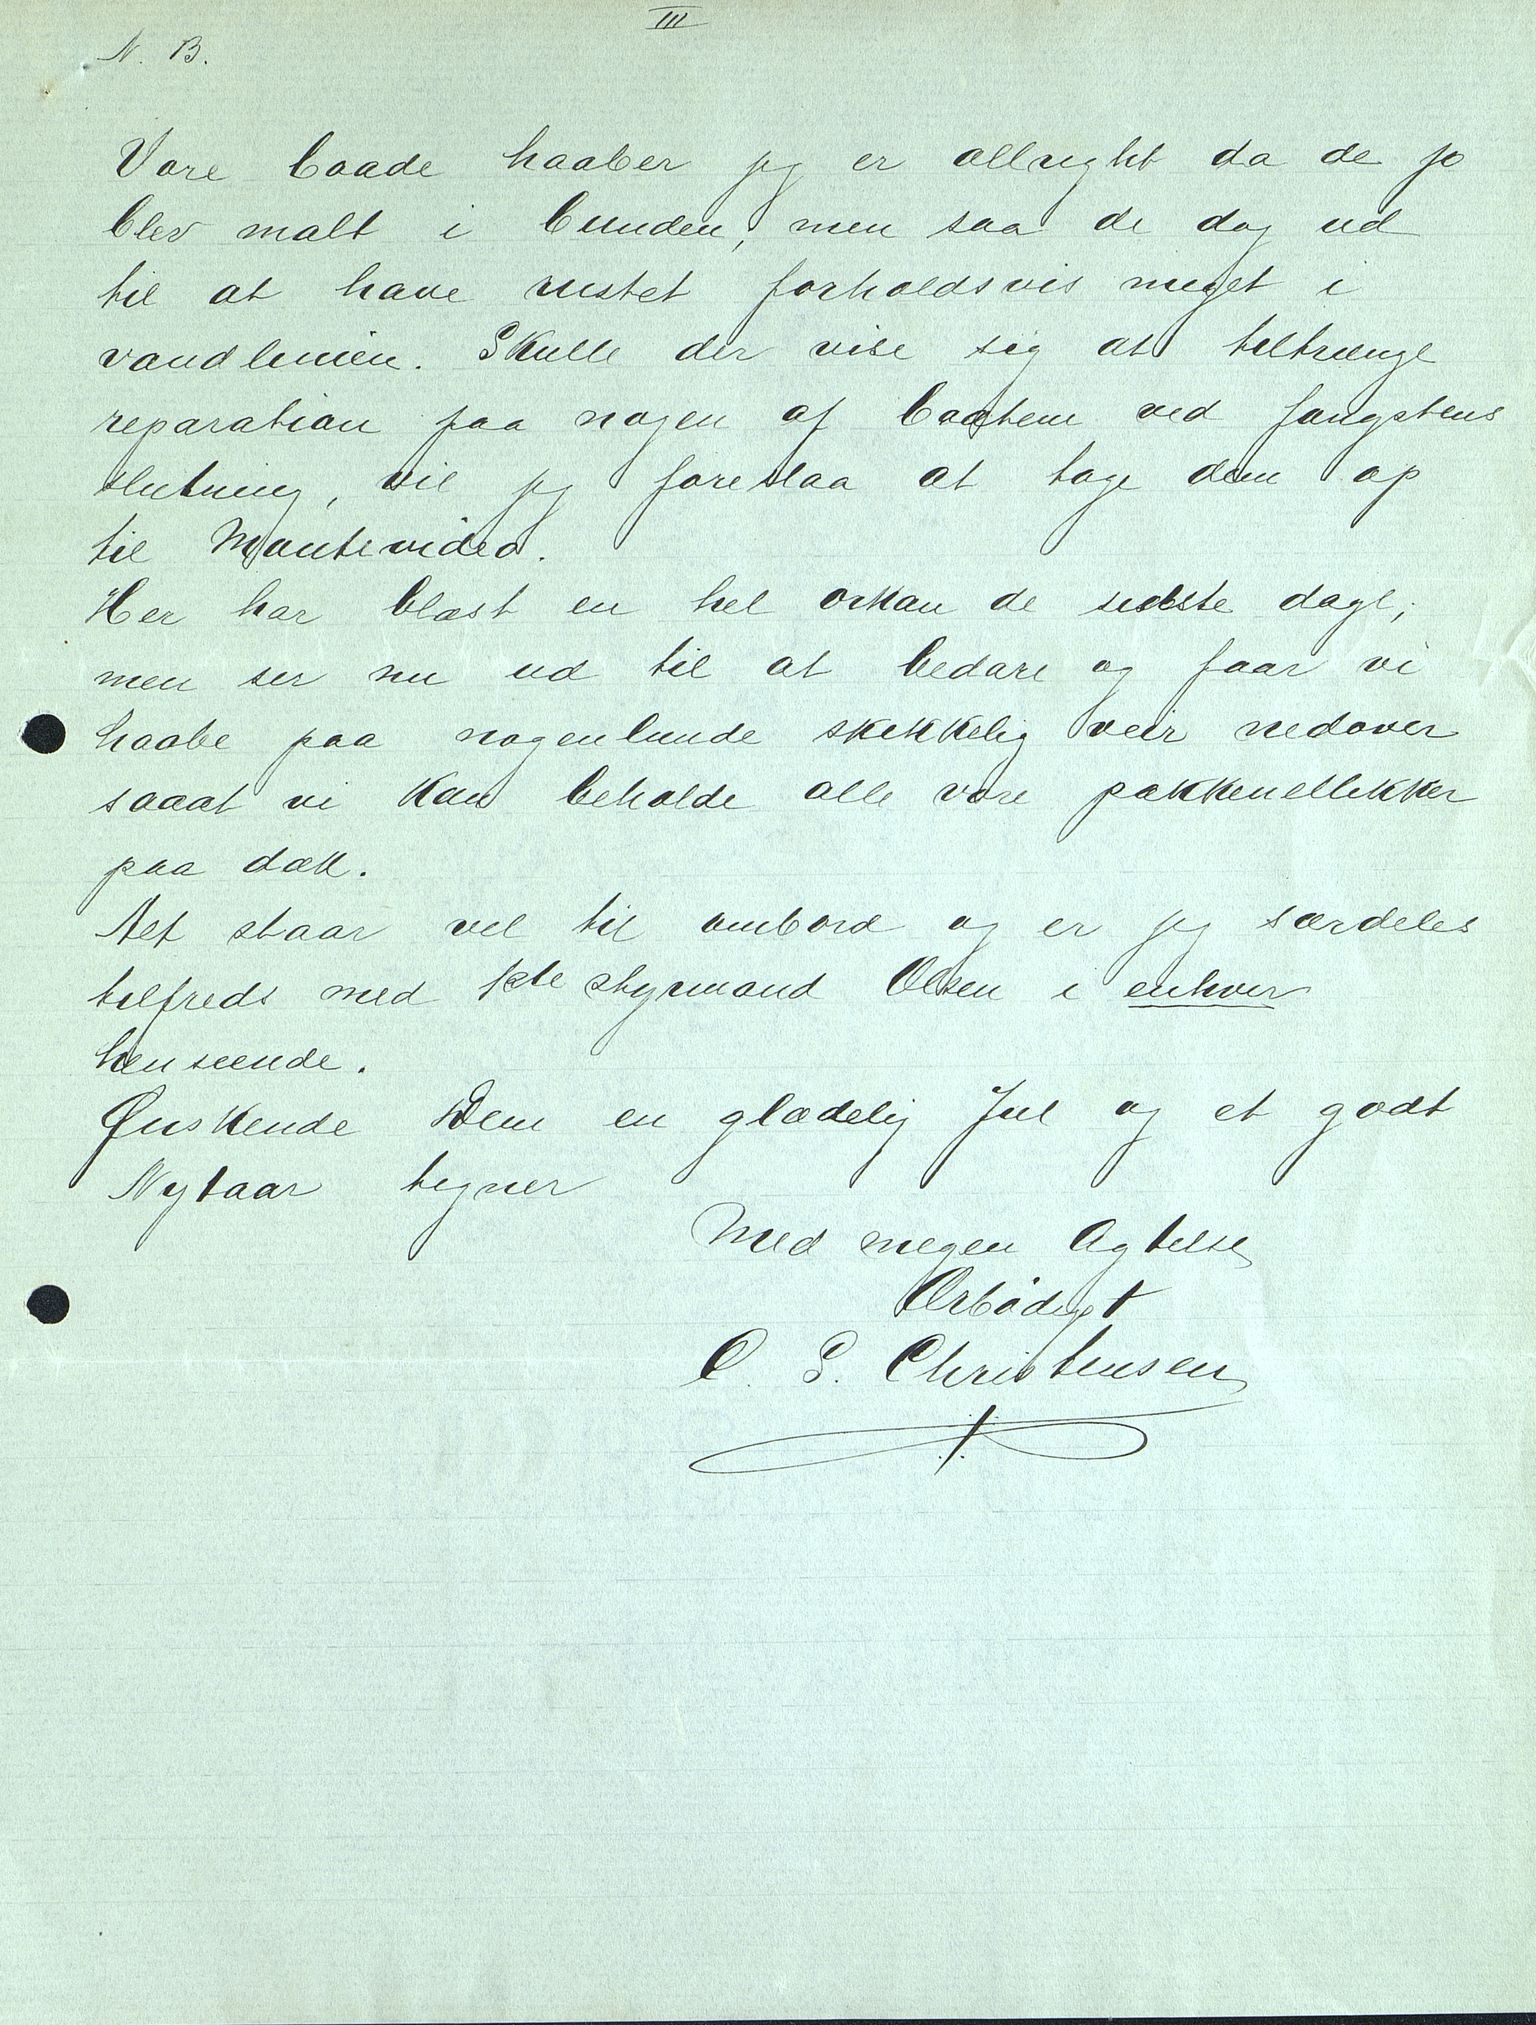 III
N. B.
Vore baade haaber jeg er allright da de jo
blev malt i bunden, men saa de dog ud
til at have rustet forholdsvis meget i
vandlinien. Skulle der vise sig at tiltrænge
reparation paa nogen af baadene ved fangstens
slutning, vil jeg foreslaa at tage dem op
til Montevideo.
Her har blæst en hel orkan de sidste dage;
men ser nu ud til at bedare og faar vi
haabe paa nogenlunde skikkelig veir nedover
saaat vi kan beholde alle vore pakkenellikker
paa dæk.
Alt staar vel til ombord og er jeg særdeles
tilfreds med 1ste styrmand Olsen i enhver
henseende.
Ønskende Dem en glædelig Jul og et godt
Nytaar tegner
Med megen Agtelse
Ærbødigst
O. S. Christensen